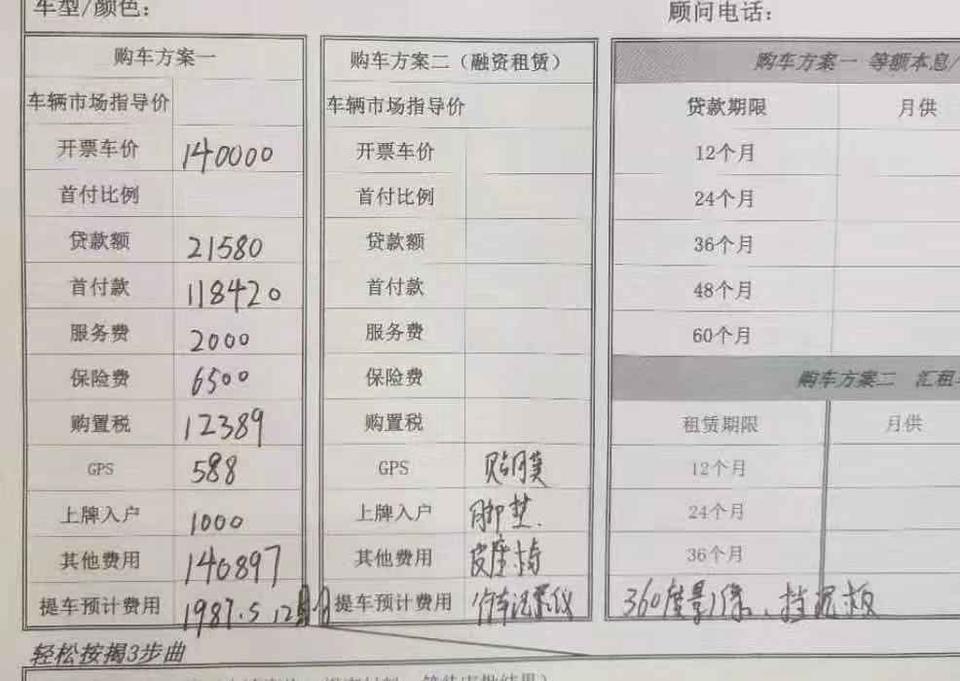 车型/颜色：
顾问电话：
购车方案一
车辆市场指导价
开票车价 140000
首付比例
贷款额 21580
首付款 118420
服务费 2000
保险费 6500
购置税 12389
GPS 588
上牌入户 1000
其他费用 140897
提车预计费用 1987.5 12
购车方案二（融资租赁）
车辆市场指导价
开票车价
首付比例
贷款额
首付款
服务费
保险费
购置税
GPS 贴膜
上牌入户 脚垫.
其他费用 皮座椅
提车预计费用 行车记录仪
购车方案一 等额本息/
贷款期限 月供
12个月
24个月
36个月
48个月
60个月
购车方案二 汇租
租赁期限 月供
12个月
24个月
36个月
360度影像、挡泥板
轻松按揭3步曲